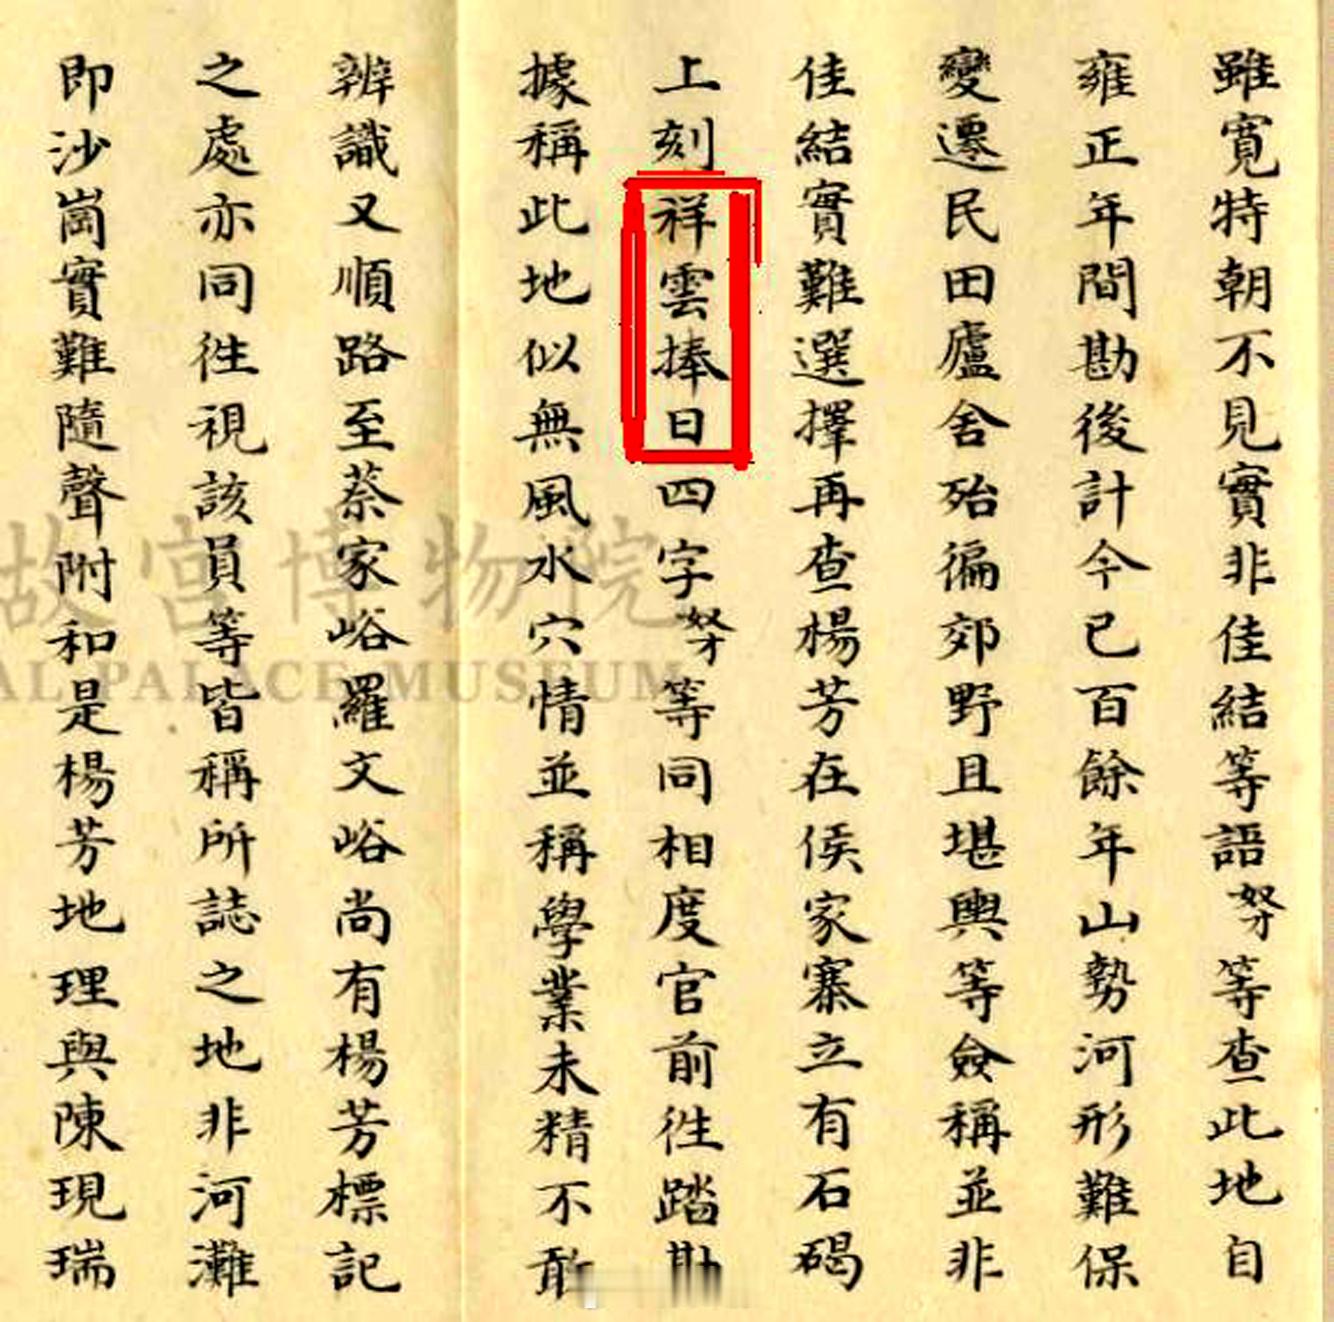 雖寬特朝不見實非佳結等語奴才等查此地自
雍正年間勘後計今已百餘年山勢河形難保
變遷民田廬舍殆徧郊野且堪輿等僉稱並非
佳結實難選擇再查楊芳在侯家寨立有石碣
上刻祥雲捧日四字奴才等同相度官前徃踏勘
據稱此地似無風水穴情並稱學業未精不敢
辨識又順路至蔡家峪羅文峪尚有楊芳標記
之處亦同徃視該員等皆稱所誌之地非河灘
即沙崗實難隨聲附和是楊芳地理與陳現瑞
故宮博物院
AL PALACE MUSEUM